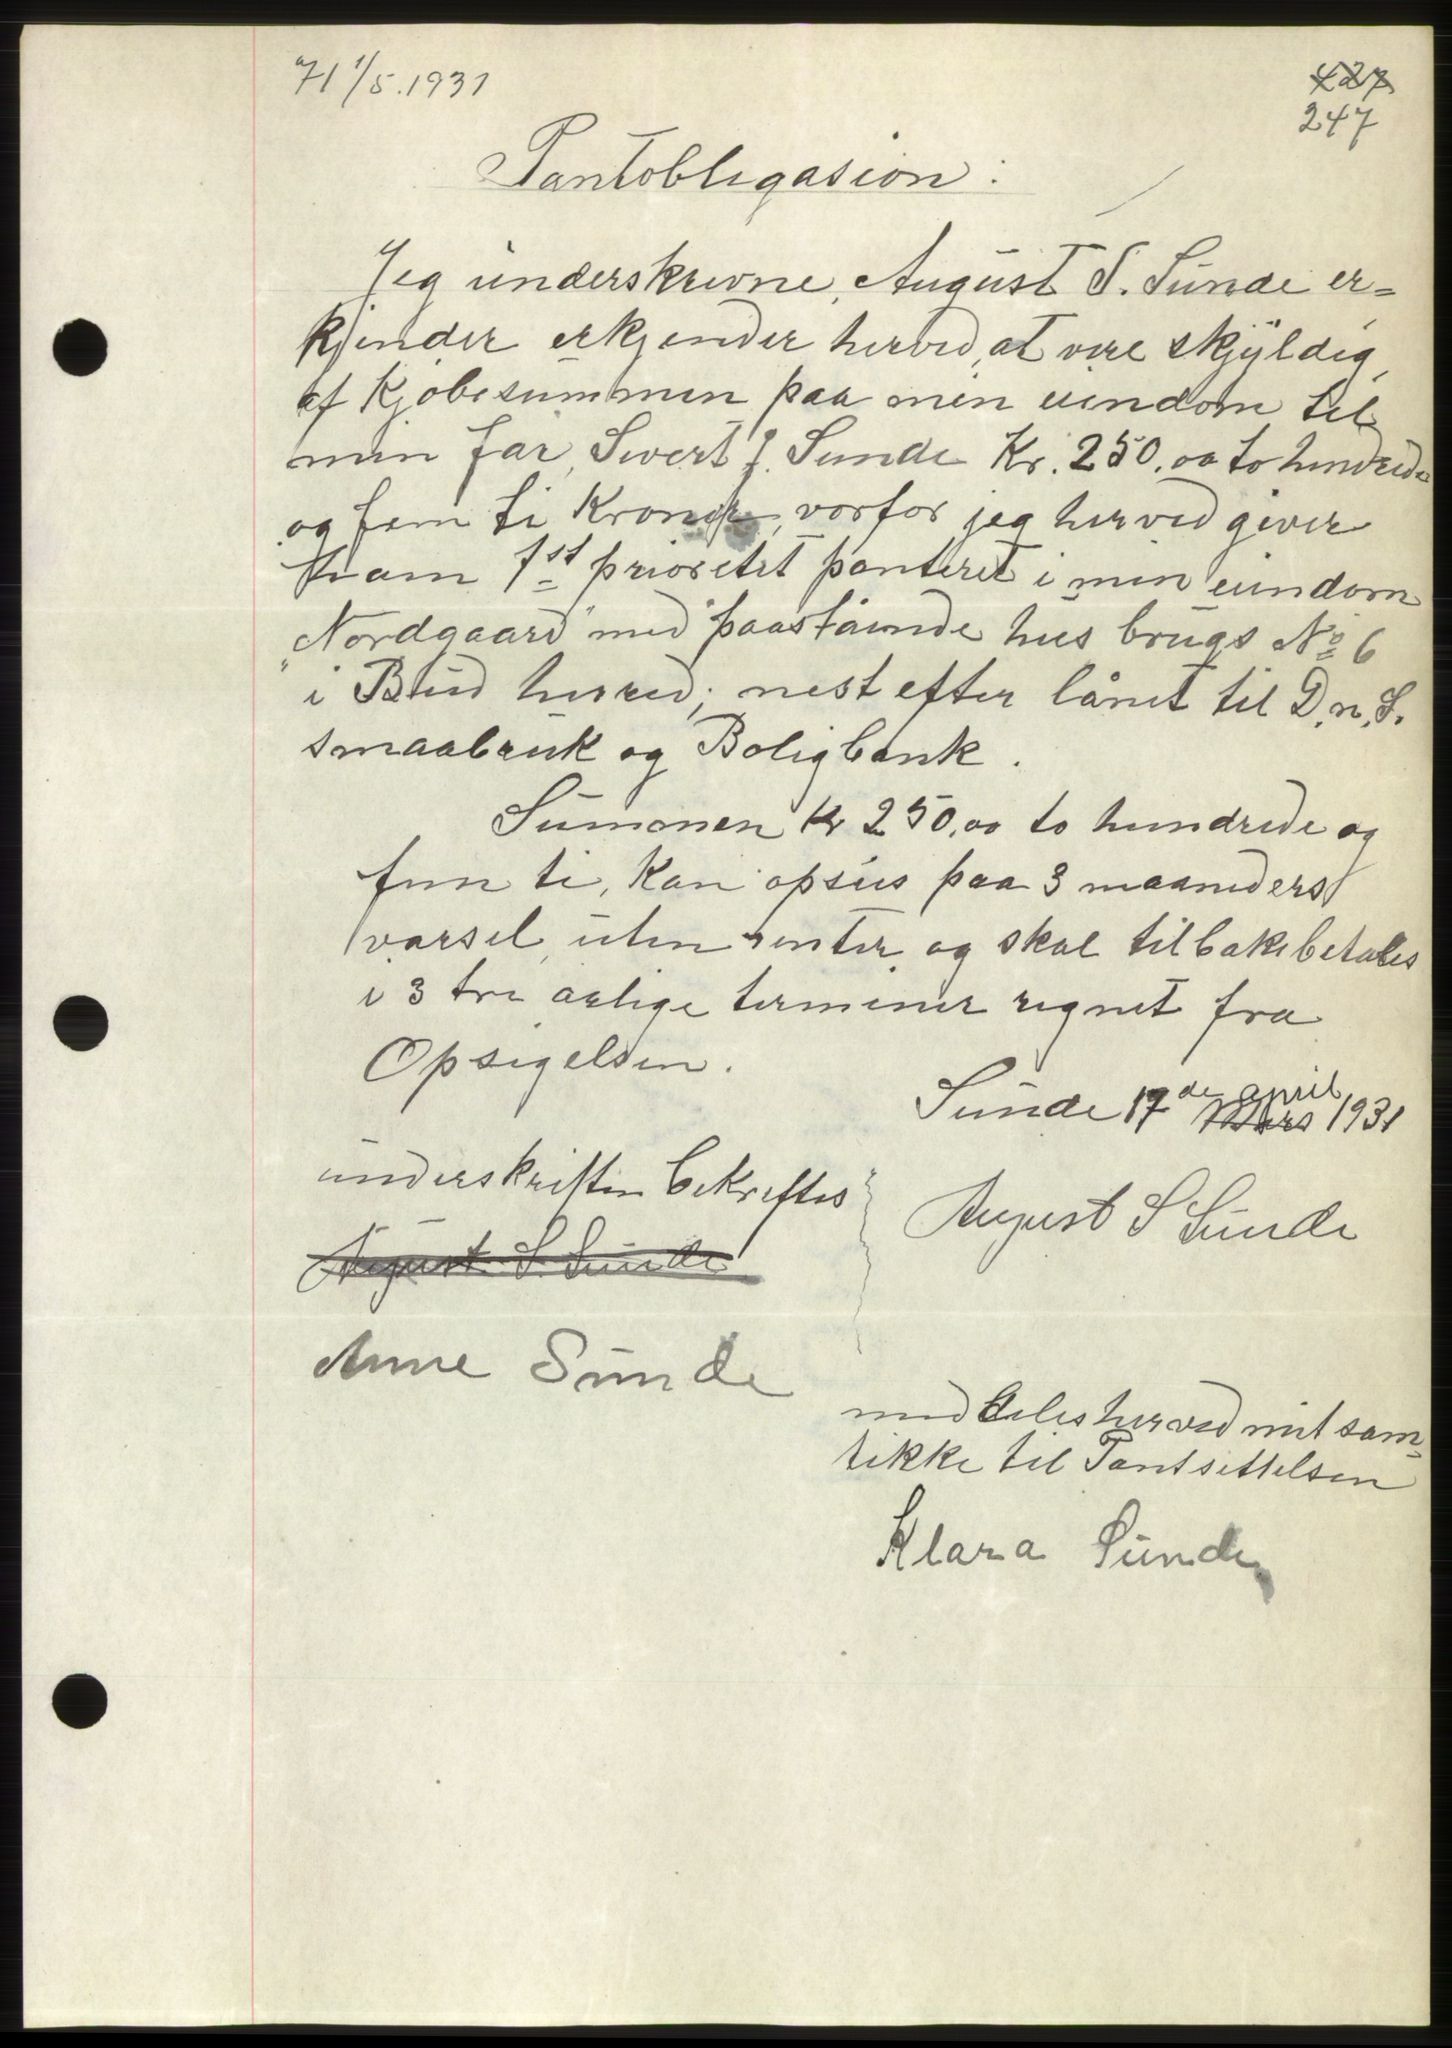 71 1/5.1931
427
247
Pantobligasion:
Jeg underskrevne, August S. Sunde er=
kjender erkjender herved, at vere skyldig,
af Kjøbesummen paa min eiendom til
min far, Sivert J. Sunde Kr. 250.00 to hundrede
og fem ti Kroner, vorfor jeg herved giver
ham 1st prioritet panteret i min eiendom
"Nordgaard" med paastaaende hus brugs No 6
i Bud herred; nest efter lånet til D.n.S.
smaabruk og Boligbank.
Summen Kr 250.00 to hundrede og
fem ti, kan opsies paa 3 maaneders
varsel, uten renter og skal tilbakebetales
i 3 tre årlige terminer regnet fra
Opsigelsen.
Sunde 17de april Mars 1931
underskriften bekreftes
August S Sunde
August S. Sunde
Anne Sunde
meddeles herved mit sam=
tikke til Pantsettelsen
Klara Sunde